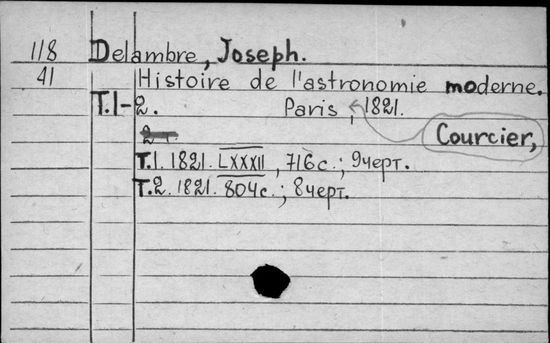 118 Delambre, Joseph.
41 Histoire de l'astronomie moderne.
T.1-2. Paris, 1821.
Courcier,
2т.
T.1. 1821. LXXXII, 716с.; 9черт.
T.2. 1821. 804с.; 8черт.